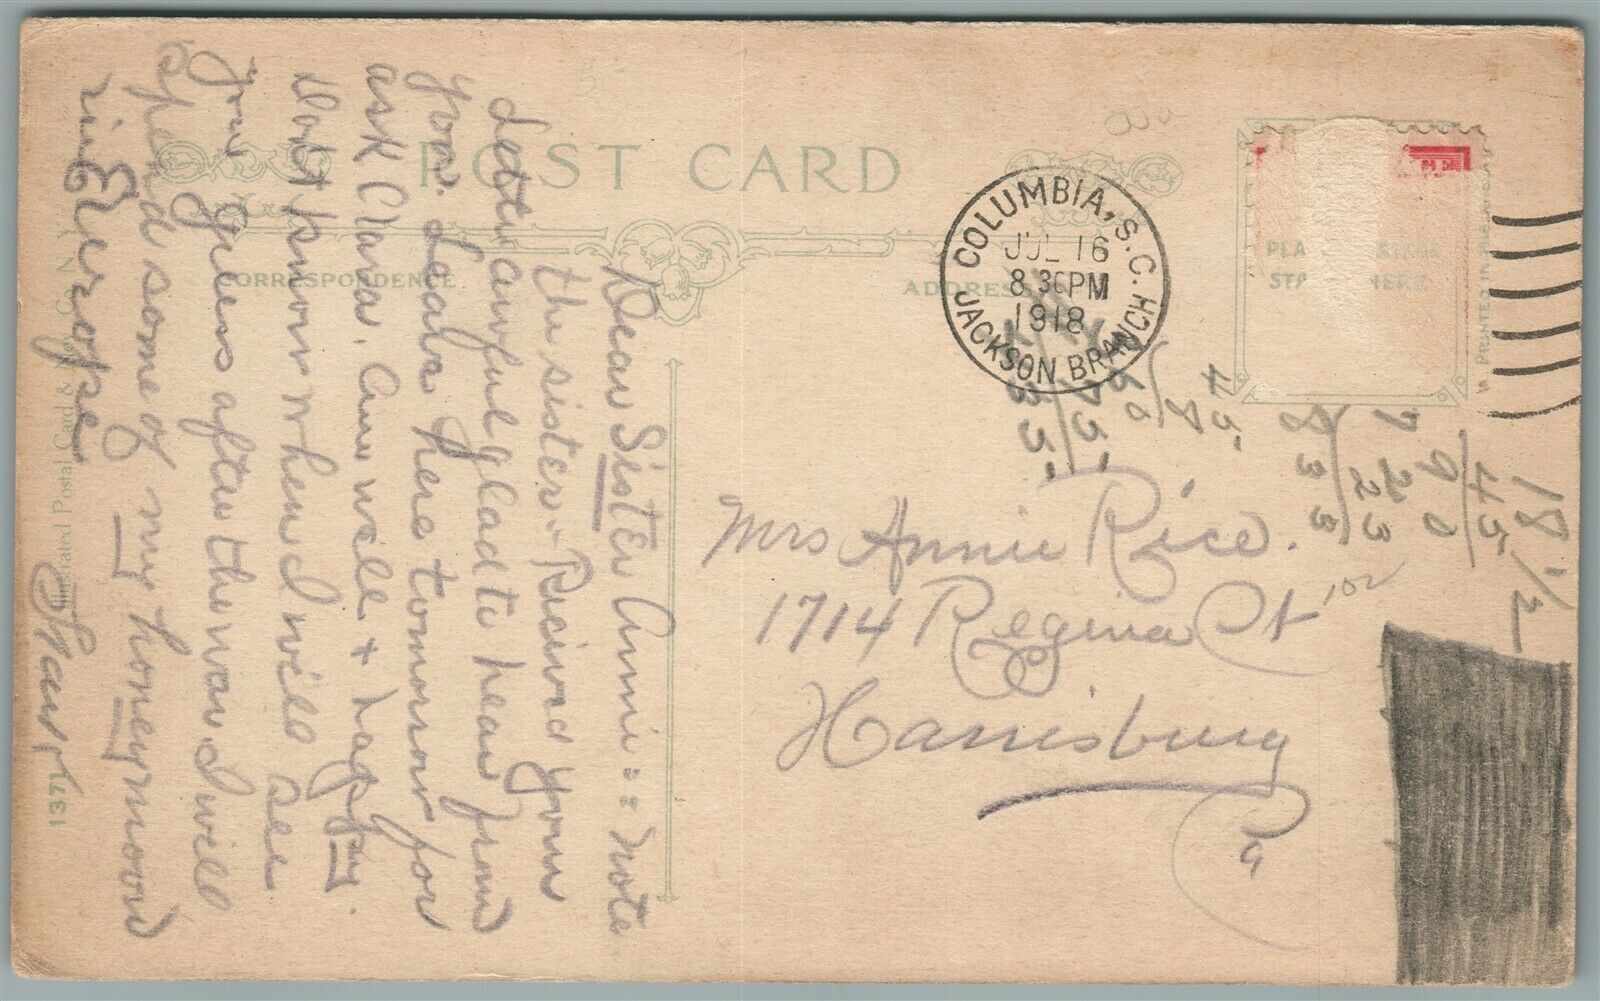 POST CARD
CORRESPONDENCE.
ADDRESS
COLUMBIA, S.C.
JUL 16
8 30 PM
1918
JACKSON BRANCH
Dear Sister Anni = = note
the sister. Recived your
letter awful glad to hear from
you. Leave here tomorrow for
ask Clara. Am well + happy.
Dont know when I will see
you Guess after the war I will
spend some of my honeymoon
in Eurrope
Mrs Annie Rice.
1714 Regina St
Harrisburg
Pa
Postal Card &
Co. N.Y.
1371
PRINTED IN
18 1/2
45
90
7
323
833
45
8
60
75
35
102